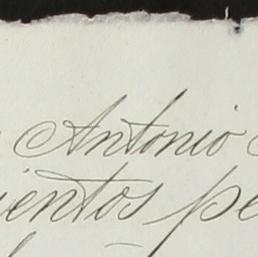 Antonio
ientos pe